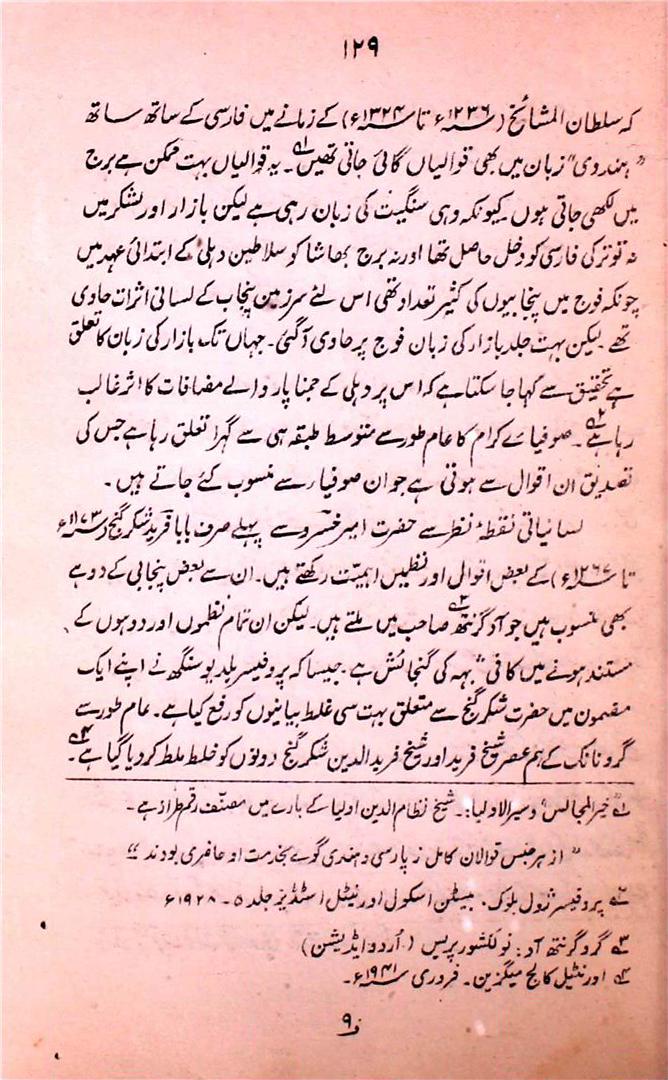 ۱۲۹
کہ سلطان المشائخ (۱۲۳۶ء تا ۱۳۲۴ء) کے زمانے میں فارسی کے ساتھ ساتھ
"ہندوی" زبان میں بھی قوالیاں گائی جاتی تھیں۱۔ یہ قوالیاں بہت ممکن ہے برج
میں لکھی جاتی ہوں۔ کیونکہ وہی سنگیت کی زبان رہی ہے لیکن بازار اور لشکر میں
نہ تو ترکی فارسی کو دخل حاصل تھا اور نہ برج بھاشا کو سلاطین دہلی کے ابتدائی عہد میں
چونکہ فوج میں پنجابیوں کی کثیر تعداد تھی اس لئے سرزمین پنجاب کے لسانی اثرات حاوی
تھے لیکن بہت جلد بازار کی زبان فوج پر حاوی آگئی۔ جہاں تک بازار کی زبان کا تعلق
ہے تحقیق سے کہا جا سکتا ہے کہ اس پر دہلی کے جمنا پار والے مضافات کا اثر غالب
رہا ہے۲۔ صوفیائے کرام کا عام طور سے متوسط طبقہ ہی سے گہرا تعلق رہا ہے جس کی
تصدیق ان اقوال سے ہوتی ہے جو ان صوفیار سے منسوب کئے جاتے ہیں۔
لسانیاتی نقطۂ نظر سے حضرت امیر خسرو سے پہلے صرف بابا فرید شکر گنج (۱۱۷۳ء
تا ۱۲۶۷ء) کے بعض اقوال اور نظمیں اہمیت رکھتے ہیں۔ ان سے بعض پنجابی کے دوہے
بھی منسوب ہیں جو آد گرنتھ۳ صاحب میں ملتے ہیں۔ لیکن ان تمام نظموں اور دوہوں کے
مستند ہونے میں کافی شبہہ کی گنجائش ہے۔ جیسا کہ پروفیسر بلدیو سنگھ نے اپنے ایک
مضمون میں حضرت شکر گنج سے متعلق بہت سی غلط بیانیوں کو رفع کیا ہے۔ عام طور سے
گرو نانک کے ہم عصر شیخ فرید اور شیخ فرید الدین شکر گنج دونوں کو خلط ملط کر دیا گیا ہے۴۔
۱؎ خیر المجالس و سیر الاولیا:۔ شیخ نظام الدین اولیا کے بارے میں مصنف رقم طراز ہے۔
"از ہر جنس قوالان کامل ز پارسی و ہندی گوے بخدمت او حاضری بودند"
۲؎ پروفیسر ژول بلوک۔ بیسٹن اسکول اورنیٹل اسٹڈیز جلد ۵۔ ۱۹۲۸ء
۳؎ گرو گرنتھ آد: نولکشور پریس (اُردو ایڈیشن)
۴؎ اورنٹیل کالج میگزین۔ فروری ۱۹۴۱ء۔